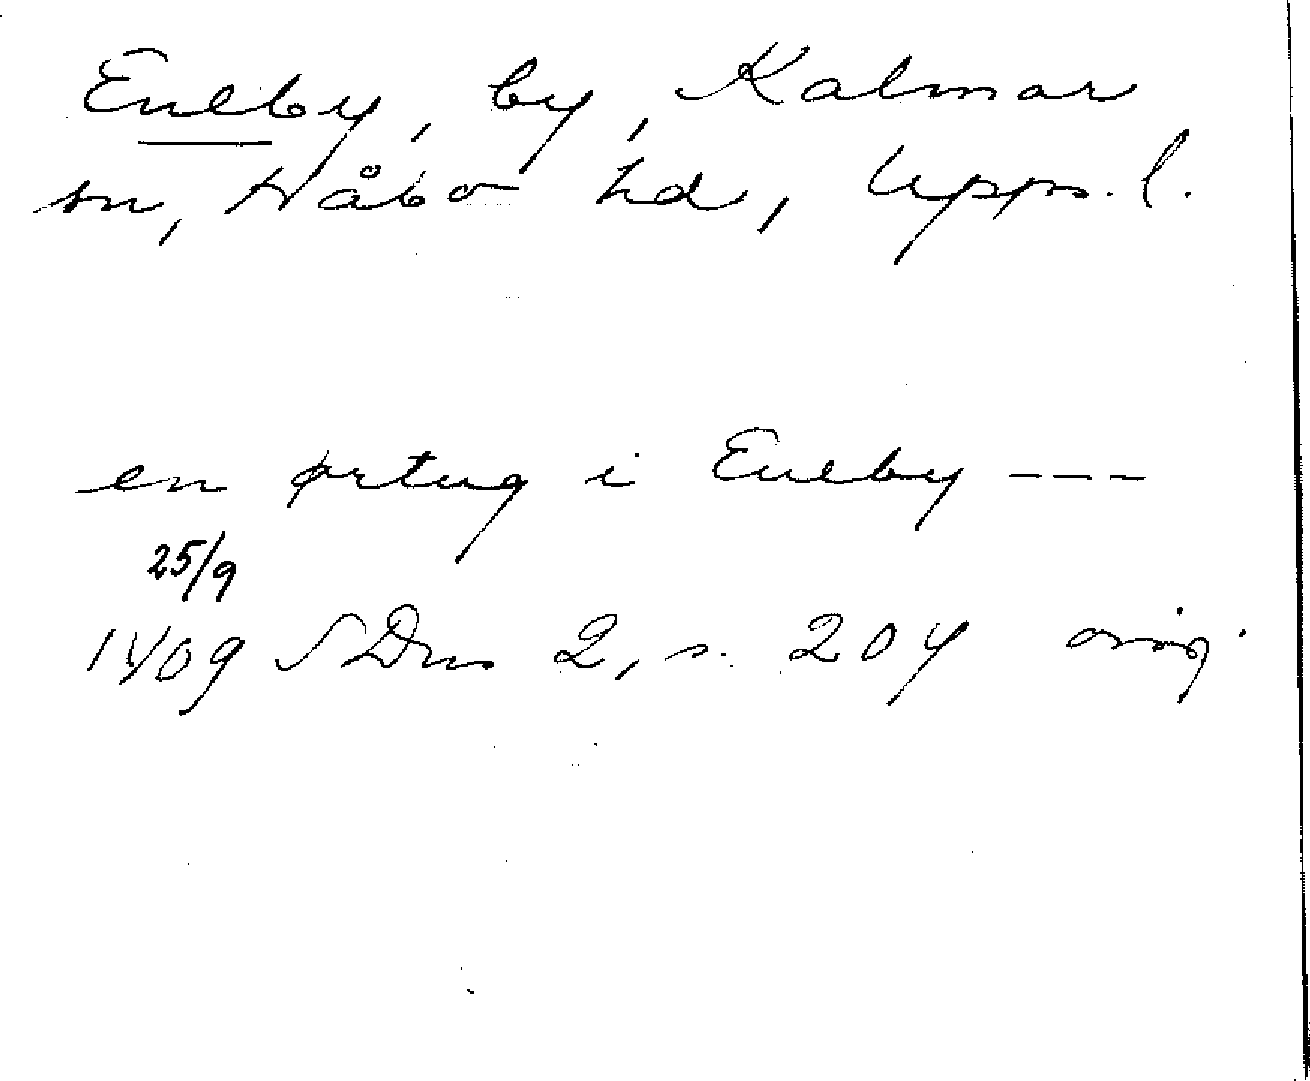 Eneby, by, Kalmar
sn, Håbo hd, Upps. l.
en ørtug i Eneby ---
25/9
1409 SDns 2, s. 204 orig.